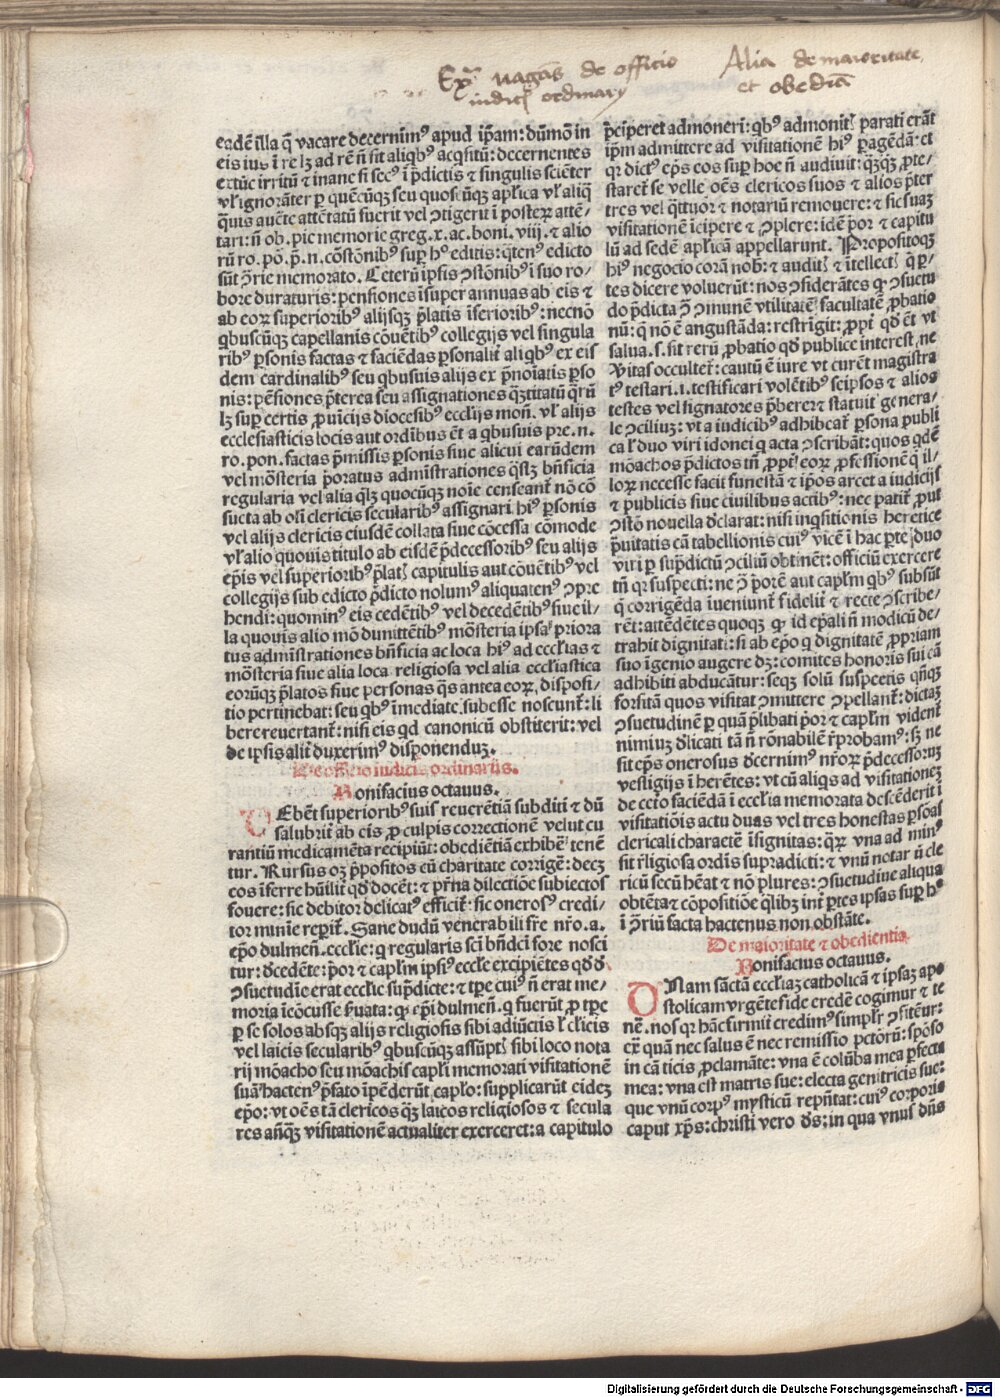 Extª vagās de officio
iudicꝭ ordinarÿ
Alia de maioritate
et obediā
eadē illa q̄ vacare decernim⁹ apud ip̄am: dūmō in
eis ius ī re lꝫ ad rē n̄ sit aliqb⁹ acq̄sitū: decernentes
extūc irritū ⁊ inane si sec⁹ ī p̄dictis ⁊ singulis sciēter
vl̄ ignorāter ꝑ quēcūqꝫ seu quoscūqꝫ apl̄ica vl̄ aliq̄
q̄uis auc̄te attētatū fuerit vel ꝯtigerit ī posteꝝ attē⸗
tari: n̄ ob. pie memorie greg. x. ac. boni. viij. ⁊ alio
rū ro. pō. p̄. n. cōstōnib⁹ suꝑ h° editis: q̄ten⁹ edicto
sūt ꝯ̄rie memorato. Ceterū ipsis ꝯstōnib⁹ ī suo ro⸗
bore duraturis: pensiones īsuper annuas ab eis ⁊
ab eoꝝ superiorib⁹ alijsqꝫ p̄latis īferiorib⁹: necnō
qbuscūqꝫ capellanis cōuētib⁹ collegijs vel singula
rib⁹ ꝑsonis factas ⁊ faciēdas ꝑsonalit̄ aliqb⁹ ex eis
dem cardinalib⁹ seu qbusuis alijs ex p̄noīatis ꝑso
nis: pēsiones p̄terea seu assignationes qͣꝫtitatū q̄rū
lꝫ suꝑ certis ꝓuīcijs diocesib⁹ ecclīis mon̄. vl̄ alijs
ecclesiasticis locis aut ordībus ēt a qbusuis pre. n.
ro. pon. factas p̄missis ꝑsonis siue alicui earūdem
vel mōsteria p̄oratus admīstrationes qͣslꝫ bn̄ficia
regularia vel alia qͣlꝫ quocūqꝫ noīe censeant̄ nō cō
sueta ab olī clericis secularib⁹ assignari hi⁹ ꝑsonis
vel alijs clericis eiusdē collata siue cōcessa cōmode
vl̄ alio quouis titulo ab eisdē p̄decessorib⁹ seu alijs
ep̄is vel superiorib⁹ p̄latꝭ capitulis aut cōuētib⁹ vel
collegijs sub edicto p̄dicto nolum⁹ aliquaten⁹ ꝯpre
hendi: quomin⁹ eis cedētib⁹ vel decedētib⁹ siue il⸗
la quouis alio mō dimittētib⁹ mōsteria ipsa priora
tus admīstrationes bn̄ficia ac loca hi⁹ ad eccl̄ias ⁊
mōsteria siue alia loca religiosa vel alia eccl̄iastica
eorūqꝫ p̄latos siue personas qͣs antea eoꝝ, disposi⸗
tio pertinebat: seu qb⁹ īmediate subesse noscunt̄: li
bere reuertant̄: nisi eis qd canonicū obstiterit: vel
de ip̄sis alit̄ duxerim⁹ disponenduꝫ.
De officio iudicis ordinariis.
Bonifacius octauus.
DEbēt superiorib⁹ suis reuerētiā subditi ⁊ dū
salubrit̄ ab eis ꝓ culpis correctionē velut cu
rantiū medicamēta recipiūt: obediētiā exhibē tenē
tur. Rursus oꝫ p̄positos cū charitate corrigē: decꝫ
eos īferre hūilit̄ qd docēt: ⁊ pr̄na dilectiōe subiectos
fouere: sic debitor delicat⁹ efficit̄: sic oneros⁹ credi⸗
tor minīe reꝑit̄. Sane dudū venerabili fr̄e nr̄o. a.
ep̄o dulmen̄. eccl̄ie: q regularis sc̄i bn̄dc̄i fore nosci
tur: dcedēte: p̄or ⁊ capl̄m ipsi⁹ eccl̄e excipiētes qd d̄
ꝯsuetudīe erat eccl̄ie sup̄dicte: ⁊ tꝑe cui⁹ n̄ erat me⸗
moria īcōcusse p̄uata: ꝙ ep̄i dulmen̄. q fuerūt ꝓ tꝑe
ꝑ se solos absqꝫ alijs religiosis sibi adiūctis l̄ cl̄icis
vel laicis secularib⁹ qbuscūqꝫ assūptꝭ sibi loco nota
rij mōacho seu mōachis capl̄i memorati visitationē
suā hacten⁹ p̄fato īpēderūt capl̄o: supplicarūt eidēꝫ
ep̄o: vt oēs tā clericos qͣꝫ laicos religiosos ⁊ secula
res anq̄ꝫ visitationē actualiter exerceret: a capitulo
p̄ciperet admoneri: qb⁹ admonitꝭ parati erāt
ip̄m admittere ad visitationē hi⁹ ꝑagēdā: et
qꝛ dict⁹ ep̄s eos suꝑ hoc n̄ audiuit: qͣꝫqͣꝫ ꝓte⸗
staret̄ se velle oēs clericos suos ⁊ alios p̄ter
tres vel qͣttuor ⁊ notariū remouere: ⁊ sic suaꝫ
visitationē īcipere ⁊ ꝯplere: idē p̄or ⁊ capitu
lū ad sedē apl̄icā appellarunt. Propositoqꝫ
hi⁹ negocio corā nob̄: ⁊ auditꝭ ⁊ ītellectꝭ q̄ ꝑ⸗
tes dicere voluerūt: nos ꝯsiderātes ꝙ ꝯsuetu
do p̄dicta ꝯ̄ ꝯmunē vtilitatē facultatē ꝓbatio
nū: q̄ nō ē angustāda: restrīgit: ꝓpt̄ qd ēt vt
salua. s. sit rerū ꝓbatio qd publice interest, ne
v̄itas occultet̄: cautū ē iure vt curēt magistra
t⁹ testari. i. testificari volētib⁹ seipsos ⁊ alios
testes vel signatores p̄bere: ⁊ statuit genera⸗
le ꝯciliuꝫ: vt a iudicib⁹ adhibeat̄ ꝑsona publi
ca l̄ duo viri idonei q acta ꝯscribāt: quos qdē
mōachos p̄dictos tn̄ ꝓpt̄ eoꝝ ꝓfessionē q̄ il⸗
loꝝ necesse facit funestā ⁊ ip̄os arcet a iudicijs
⁊ publicis siue ciuilibus actib⁹: nec patit̄ ꝓut
ꝯstō nouella dclarat: nisi inqͥsitionis heretice
p̄uitatis cā tabellionis cui⁹ vicē ī hac parte duo
viri ꝑ sup̄dictū ꝯciliū obtinēt: officiū exercere
tn̄ qꝛ suspecti: ne ꝯ̄ p̄orē aut capl̄m qb⁹ subsūt
q̄ corrigēda īueniunt̄ fidelit̄ ⁊ recte ꝯscribe⸗
rēt: attēdētes quoqꝫ ꝙ id ep̄ali n̄ modicū de⸗
trahit dignitati: si ab ep̄o q dignitatē ꝓpriam
suo īgenio augere dꝫ: comites honoris sui cā
adhibiti abducātur: seqꝫ solū suspectis qn̄qꝫ
forsitā quos visitat ꝯmittere ꝯpellant̄: dictaꝫ
ꝯsuetudinē ꝑ quā p̄libati p̄or ⁊ capl̄m vident̄
nimiuꝫ dlicati tā n̄ rōnabilē r̄probam⁹: sꝫ ne
sit ep̄s onerosus dcernim⁹ nr̄oꝝ p̄decessoruꝫ
vestigijs īherētes: vt cū aliqs ad visitationeꝫ
de cetō faciēdā ī eccl̄ia memorata descēderit ī
visitatiōis actu duas vel tres honestas ꝑsōas
clericali charactē īsignitas: qͣꝝ vna ad min⁹
sit r̄ligiosa ordīs supradicti: ⁊ vnū notariū cle
ricū secū hēat ⁊ nō plures: ꝯsuetudine aliqua
obtēta ⁊ cōpositiōe qͣlibꝫ int̄ ꝑtes ipsas suꝑ h°
ī ꝯ̄riū facta hactenus non obstāte.
De maioritate ⁊ obedientia
Bonifacius octauus.
VNam sāctā eccl̄iaꝫ catholicā ⁊ ipsaꝫ apo
stolicam vrgēte fide credē cogimur ⁊ te
nē. nosqꝫ hāc firmit̄ credim⁹ simpl̄r ꝯfitēur:
ex̄ quā nec salus ē nec remissio pctōrū: spōso
in cāticis ꝓclamāte: vna ē colūba mea ꝑfecta
mea: vna est matris sue: electa genitricis sue:
que vnū corp⁹ mysticū repn̄tat: cui⁹ corporis
caput xp̄s: christi vero ds: in qua vnus dn̄s
Digitalisierung gefördert durch die Deutsche Forschungsgemeinschaft - DFG